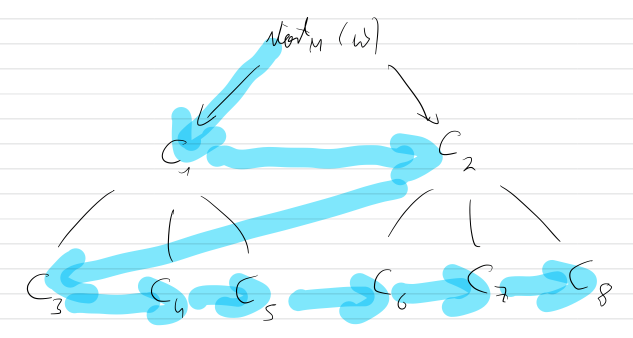 start_M (w)
C_1 C_2
C_3 C_4 C_5 C_6 C_7 C_8